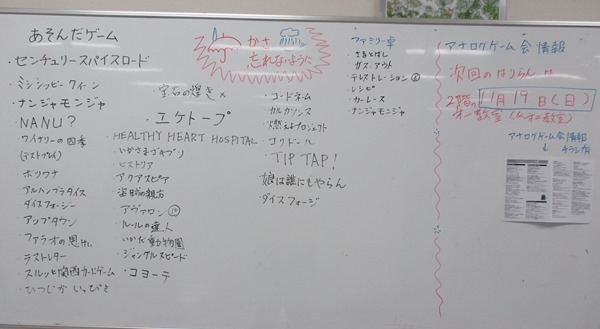 あそんだゲーム
・センチュリースパイスロード
・ミシシッピークイーン
・ナンジャモンジャ
・NANU?
・ワイナリーの四季
(テストプレイ)
・ボツワナ
・アルハンブラダイス
・ダイスフォージ
・アップタウン
・ファラオの恩恵
・ラストレター
・スルッと関西カードゲーム
・ひつじがいっぴき
・宝石の煌き×
・エケトープ
・HEALTHY HEART HOSPITAL
・いかさまゴキブリ
・ヒストリア
・アクアスピア
・盗賊の親方
・アヴァロン
・ルールの達人
・いかだ動物園
・ジャングルスピード
・コヨーテ
かさ
忘れないように
・コードネーム
・カルカソンヌ
・燃えよプロジェクト
・コリドール
・TIP TAP!
・娘は誰にもやらん
・ダイスフォージ
ファミリー卓
・さるとばし
・ガス・アウト
・テレストレーション②
・レシピ
・カーレース
・ナンジャモンジャ
アナログゲーム会情報
次回のはりらんは
11月19日(日)
2階の
アナログゲーム会情報
↓チラシ有